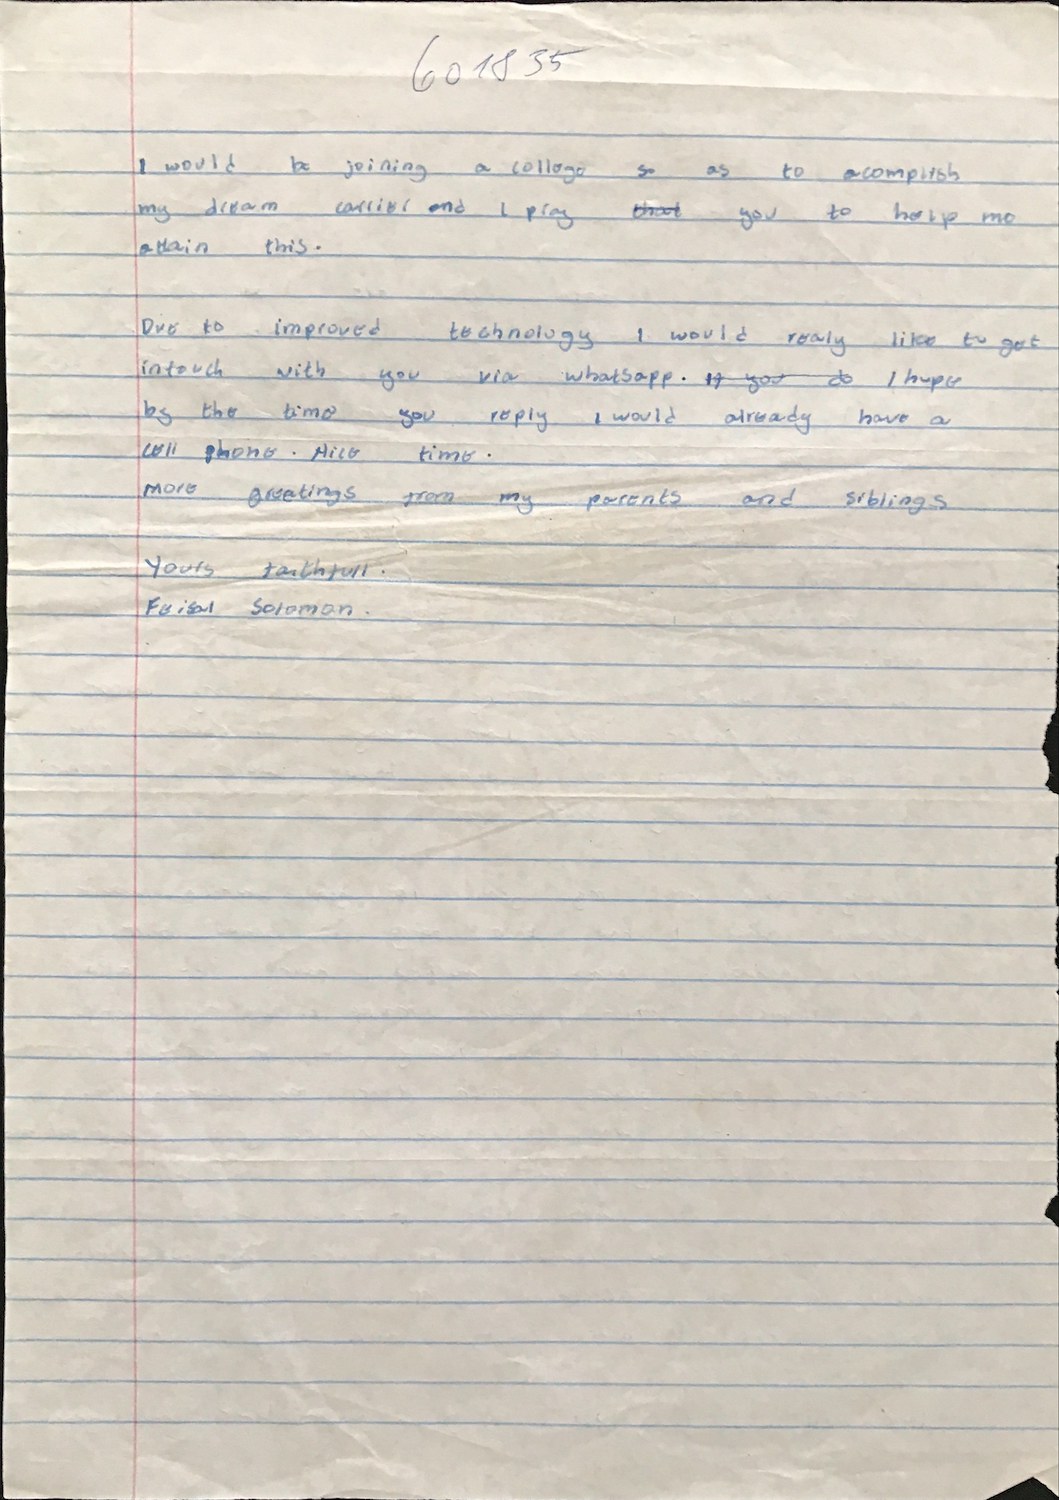 601835
I would be joining a college so as to acomplish
my dream carrier and I pray that you to help me
attain this.
Due to improved technology I would realy like to get
intouch with you via whatsapp. If you do I hope
by the time you reply I would already have a
cell phone. Nice time.
More greetings from my parents and siblings
Yours faithfull.
Faisal Solomon.